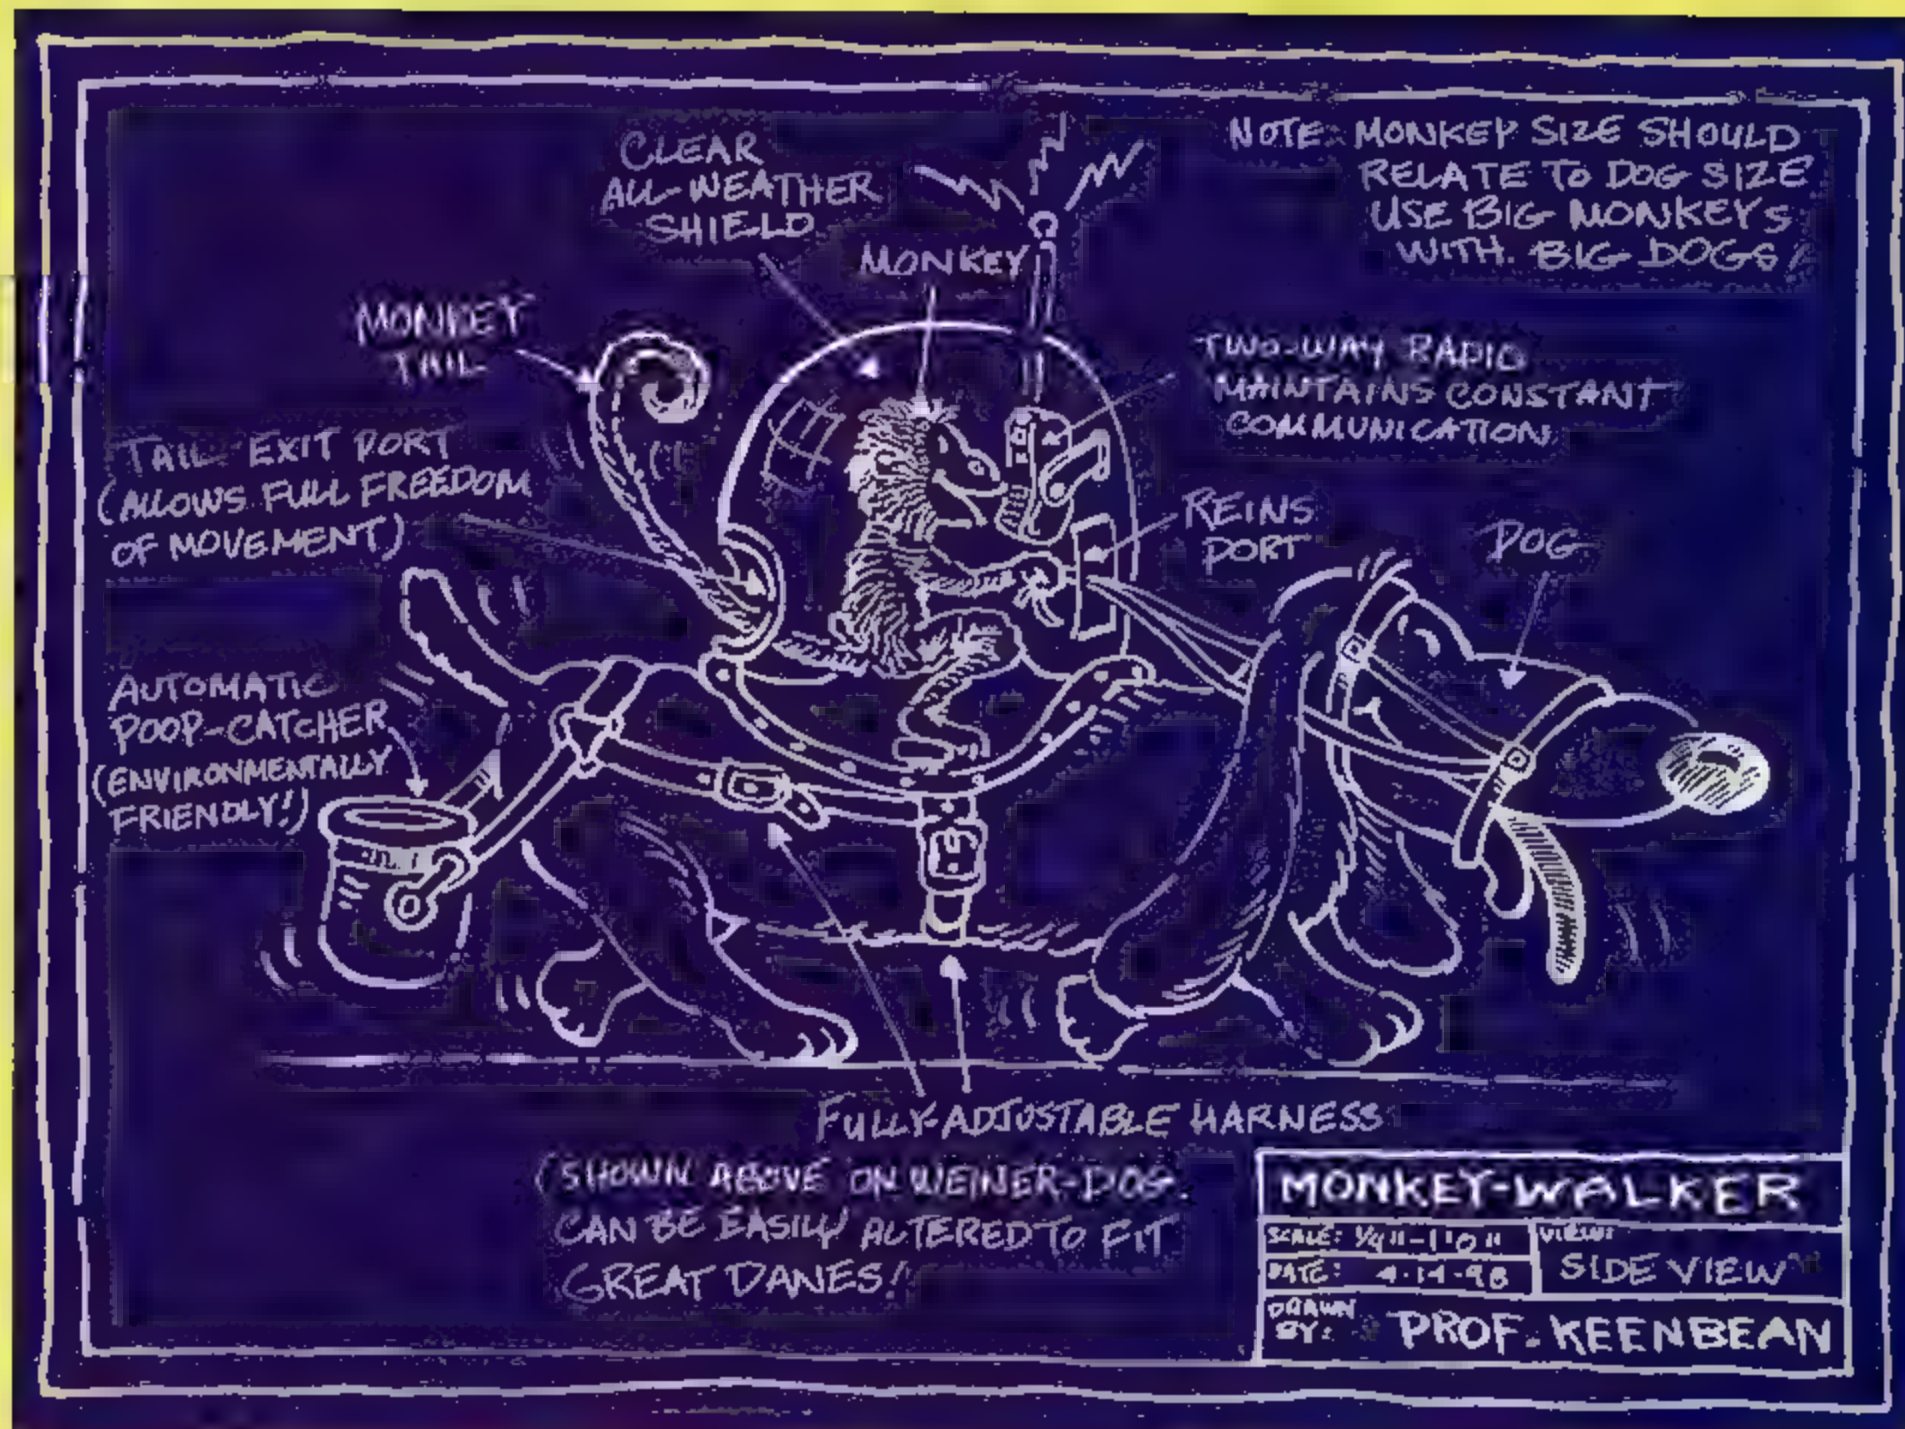 CLEAR
ALL-WEATHER
SHIELD
MONKEY
NOTE: MONKEY SIZE SHOULD
RELATE TO DOG SIZE
USE BIG MONKEYS
WITH BIG DOGS!
MONKEY
TAIL
TWO-WAY RADIO
MAINTAINS CONSTANT
COMMUNICATION
TAIL EXIT PORT
(ALLOWS FULL FREEDOM
OF MOVEMENT)
REINS
PORT
DOG
AUTOMATIC
POOP-CATCHER
(ENVIRONMENTALLY
FRIENDLY!)
FULLY-ADJUSTABLE HARNESS
(SHOWN ABOVE ON WEINER-DOG.
CAN BE EASILY ALTERED TO FIT
GREAT DANES!)
MONKEY-WALKER
SCALE: 1/4"-1'0"
VIEW:
SIDE VIEW
DATE: 4-14-98
DRAWN
BY: PROF. KEENBEAN